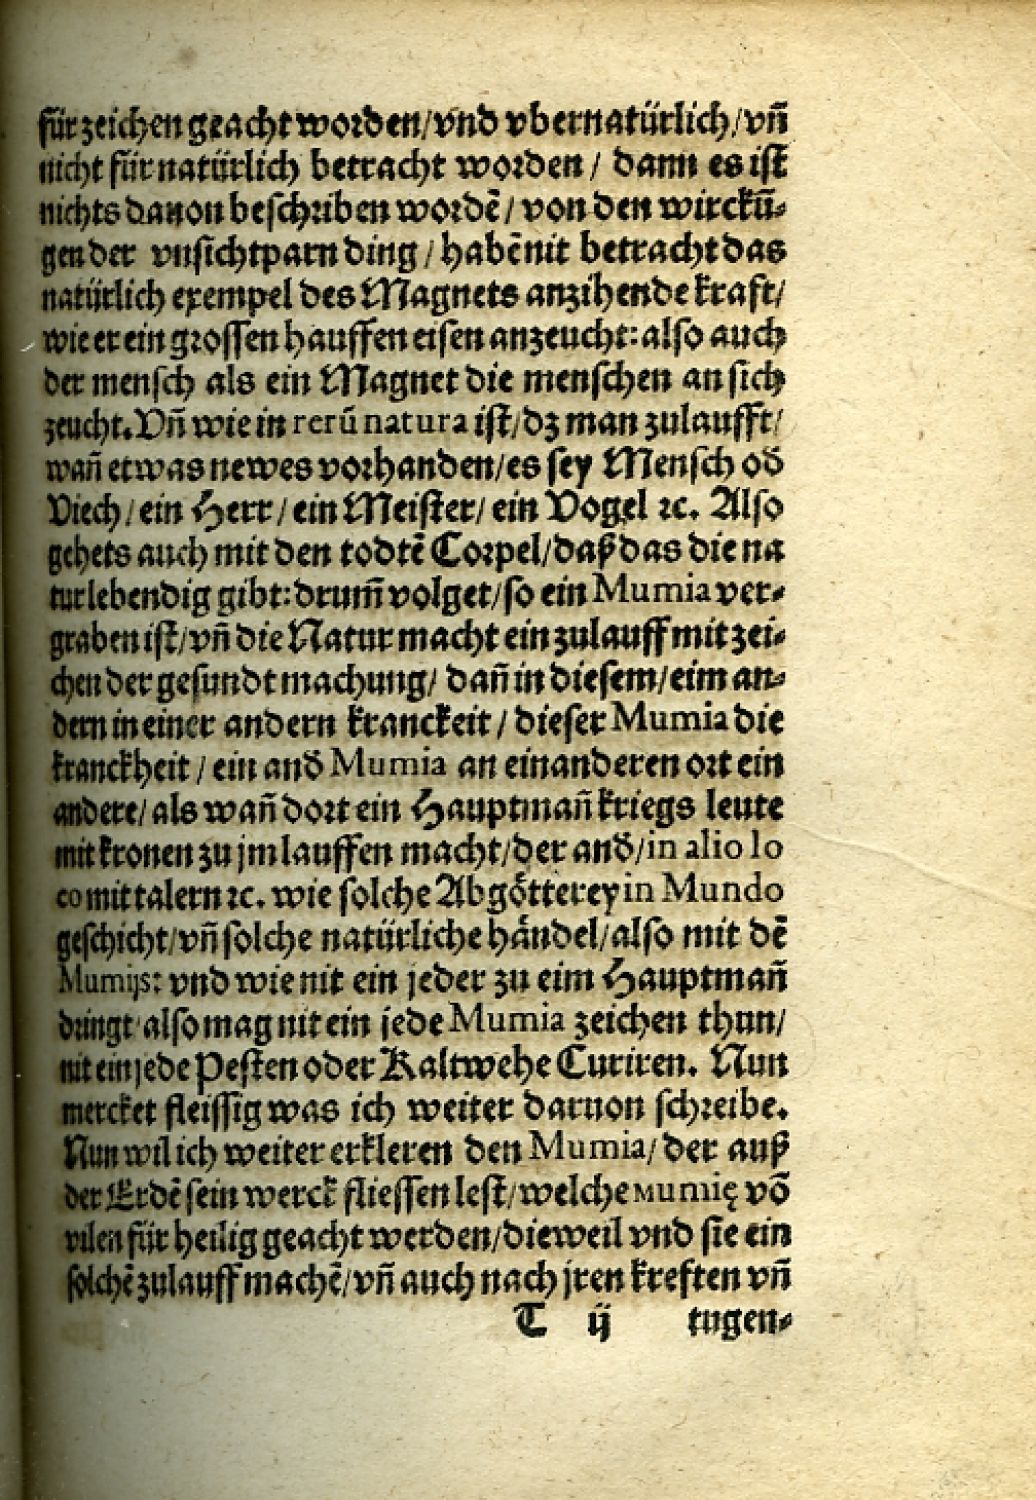 für zeichen geacht worden/vnd vbernatürlich/vñ
nicht für natürlich betracht worden / dann es ist
nichts dauon beschriben wordē/ von den wirckũ-
gen der vnsichtparn ding / habē nit betracht das
natürlich exempel des Magnets anzihende kraft/
wie er ein grossen hauffen eisen anzeucht: also auch
der mensch als ein Magnet die menschen an sich
zeucht. Vñ wie in rerũ natura ist/dz man zulaufft/
wañ etwas newes vorhanden/es sey Mensch od̄
Viech/ein Herr/ein Meister/ein Vogel ꝛc. Also
gehets auch mit den todtē Corpel/daß das die na
tur lebendig gibt: drum̃ volget/so ein Mumia ver-
graben ist/vñ die Natur macht ein zulauff mit zei-
chen der gesundtmachung/ dañ in diesem/eim an-
dern in einer andern kranckeit / dieser Mumia die
kranckheit / ein and̄ Mumia an einanderen ort ein
andere/als wañ dort ein Hauptmañ kriegs leute
mit kronen zu jm lauffen macht/der and̄/in alio lo
co mit talern ꝛc. wie solche Abgötterey in Mundo
geschicht/vñ solche natürliche händel/also mit dē
Mumijs: vnd wie nit ein jeder zu eim Hauptmañ
dringt also mag nit ein jede Mumia zeichen thun/
nit ein jede Pesten oder Kaltwehe Curiren. Nun
mercket fleissig was ich weiter daruon schreibe.
Nun wil ich weiter erkleren den Mumia/ der auß
der Erdē sein werck fliessen lest/welche Mumię vō
vilen für heilig geacht werden/dieweil vnd sie ein
solchē zulauff machē/vñ auch nach jren kreften vñ
T ij tugen-